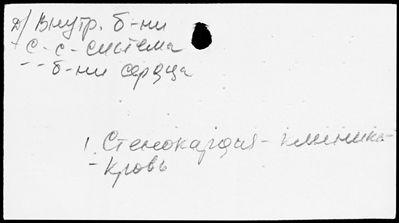 д/ Внутр. б-ни
- С.-с-система
-- б-ни сердца
1. Стенокардия - клиника-
- кровь